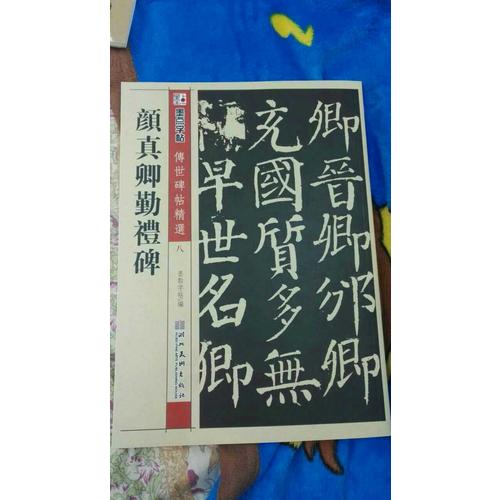 顔真卿勤禮碑
墨点字帖
傳世碑帖精選
八
墨點字帖 編
湖北美術出版社
卿晉卿邠卿
充國質多無
早世名卿